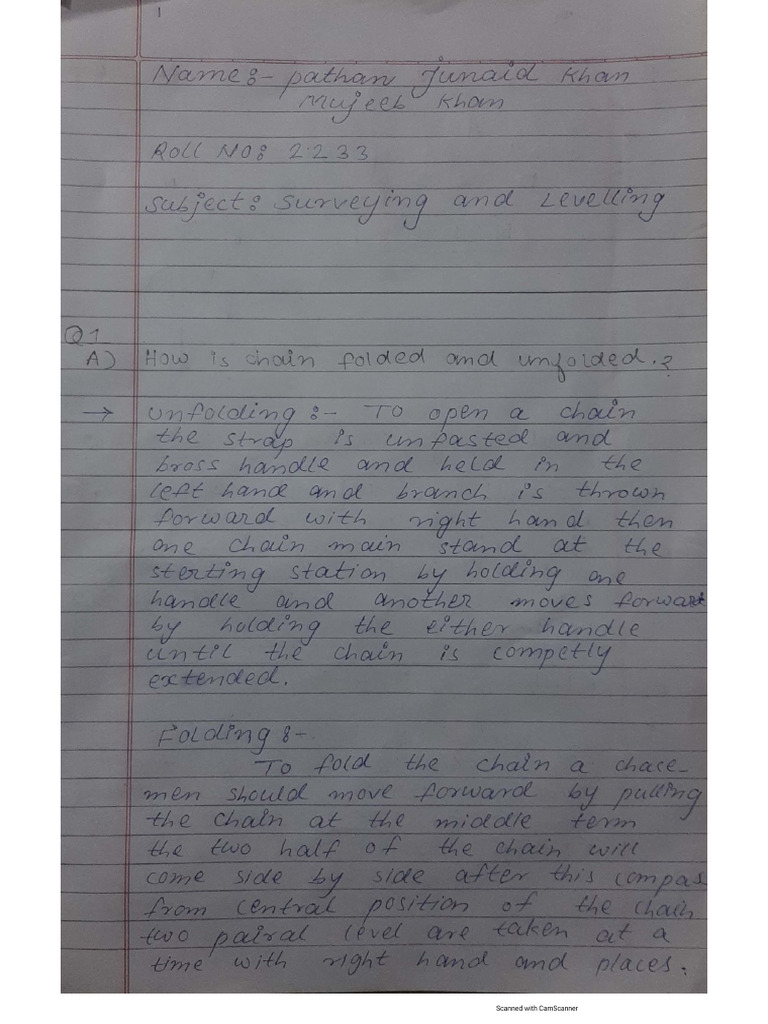 1
Name:- pathan Junaid Khan
Mujeeb Khan
Roll No: 2233
Subject: Surveying and Levelling
Q1
A) How is chain folded and unfolded.?
→ Unfolding :- To open a chain
the strap is unfasted and
bross handle and held in the
left hand and branch is thrown
forward with right hand then
one chain main stand at the
sterting station by holding one
handle and another moves forward
by holding the either handle
until the chain is competly
extended.
Folding :-
To fold the chain a chace-
men should move forward by pulling
the chain at the middle term
the two half of the chain will
come side by side after this compas
from central position of the chain
two pairal level are taken at a
time with right hand and places.
Scanned with CamScanner